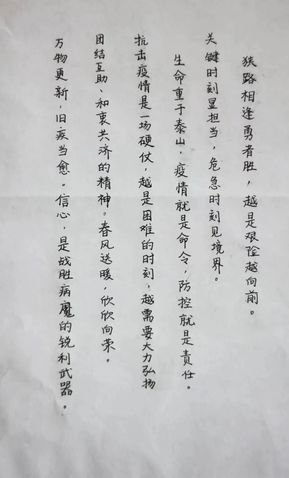 狭路相逢勇者胜，越是艰险越向前。
关键时刻显担当，危急时刻见境界。
生命重于泰山，疫情就是命令，防控就是责任。
抗击疫情是一场硬仗，越是困难的时刻，越需要大力弘扬
团结互助、和衷共济的精神。春风送暖，欣欣向荣。
万物更新，旧疾当愈。信心，是战胜病魔的锐利武器。